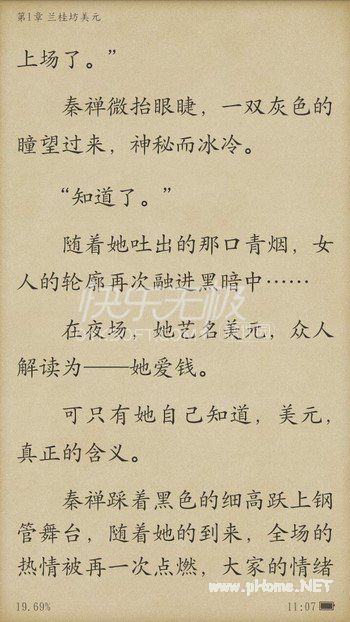 第1章 兰桂坊美元
上场了。”
秦禅微抬眼睫，一双灰色的
瞳望过来，神秘而冰冷。
“知道了。”
随着她吐出的那口青烟，女
人的轮廓再次融进黑暗中……
快乐无极
在夜场，她艺名美元，众人
解读为——她爱钱。
可只有她自己知道，美元，
真正的含义。
秦禅踩着黑色的细高跃上钢
管舞台，随着她的到来，全场的
热情被再一次点燃，大家的情绪
www.pHome.NET
19.69%
11:07